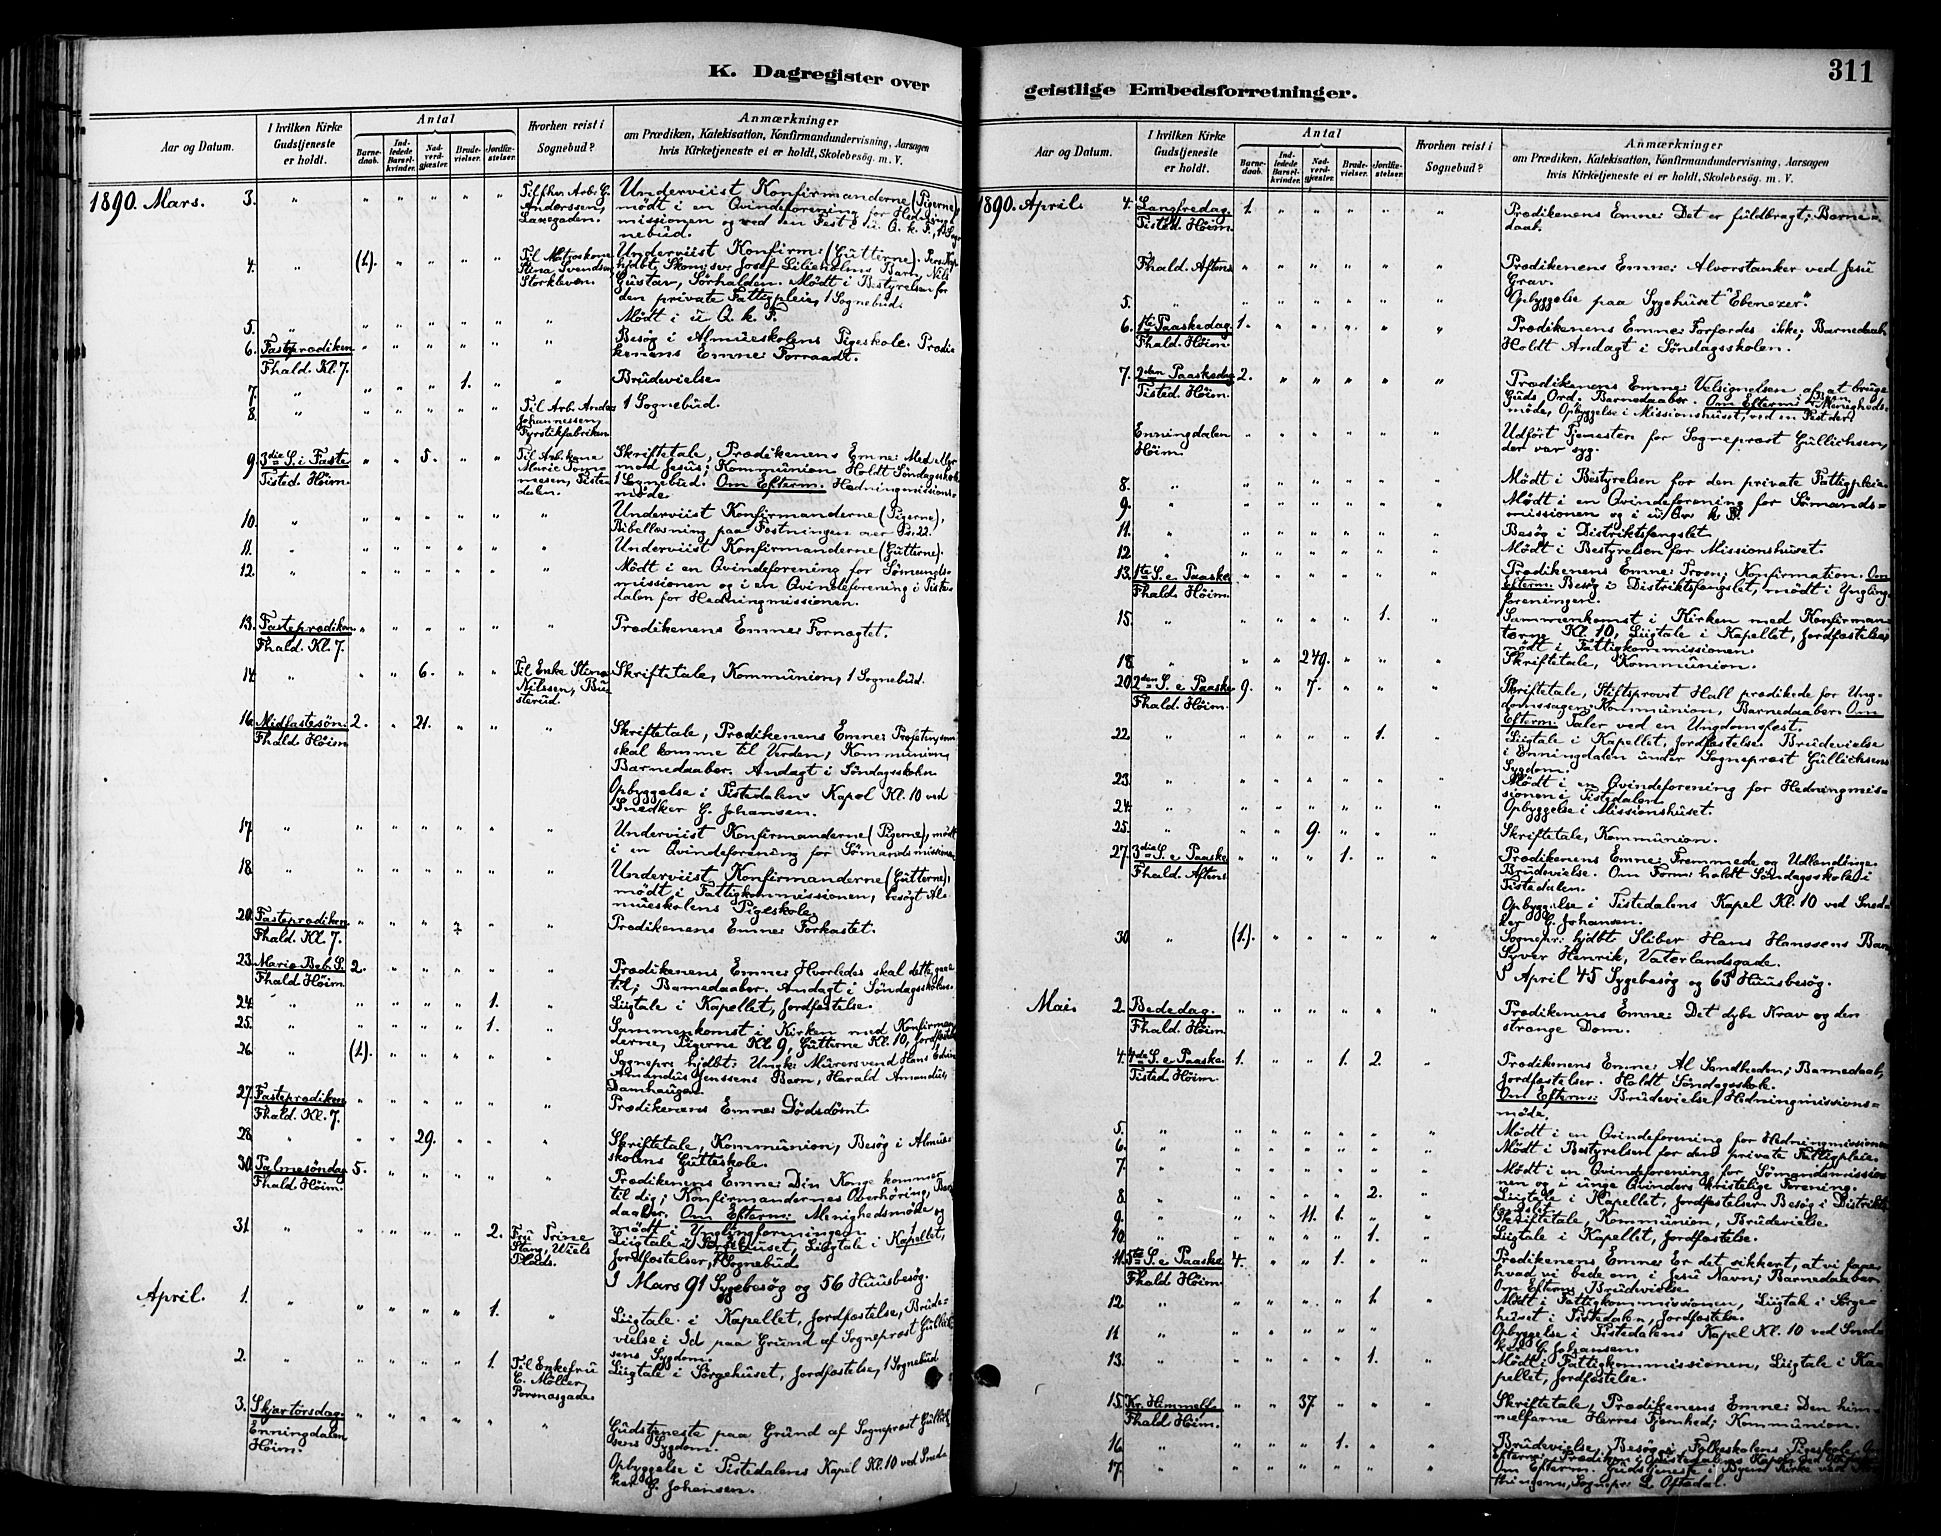 K. Dagregister over
Aar og Datum.
I hvilken Kirke Gudstjeneste er holdt.
Antal
Barnedaab.
Indledede Barselkvinder.
Nadverdgjæster.
Brudevielser.
Jordfæstelser.
Hvorhen reist i Sognebud?
Anmærkninger
om Prædiken, Katekisation, Konfirmandundervisning, Aarsagen
hvis Kirketjeneste ei er holdt, Skolebesøg. m. V.
1890. Mars. 3. Underviist Konfirmanderne (Pigerne),
Anderssen, mødt i en Qvindeforening for Hedning-
missionen og ved en Fest i u. Q. k. F.
nebud.
4. (1.) Underviist Konfirm: (Gutterne).
Storkleven. Gustav, Sørhalden. Mødt i Bestyrelsen for
den private Fattigpleie, 1 Sognebud.
5. Mødt i u. Q. k. F.
6. Fasteprædiken Besøg i Almueskolens Pigeskole. Prædi-
Fhald. Kl. 7. kenens Emne: Forraadt.
7. 1. Brudevielse.
8. Til Arb. Anders 1 Sognebud.
Johannessen,
Fyrstikfabriken
9. 3die S. i Faste 5. Til Arb.kone Skriftetale, Prædikenens Emne: Med eller
Tisted. Høim. mod Jesus; Kommunion. Holdt Søndagsskole
1 Sognebud. Om Efterm: Hedningmissions-
møde.
10. Underviist Konfirmanderne (Pigerne),
Bibellæsning paa Fæstningen over Ps. 22.
11. Underviist Konfirmanderne (Gutterne).
12. Mødt i en Qvindeforening for Sømands-
missionen og i en Qvindeforening i Tiste-
dalen for Hedningmissionen.
13. Fasteprædiken Prædikenens Emne: Fornægtet.
Fhald. Kl. 7.
14. 6. Til Enke Stina Skriftetale, Kommunion, 1 Sognebud.
Nilssen,
16. Midfastesøn: 2. 21. Skriftetale, Prædikenens Emne: Profeten, som
Fhald. Høim. skal komme til Verden; Kommunion,
Barnedaaber. Andagt i Søndagsskolen.
Opbyggelse i Tistedalens Kapel Kl. 10 ved
Snedker G. Johansen.
17. Underviist Konfirmanderne (Pigerne), mødt
i en Qvindeforening for Sømandsmissionen
18. Underviist Konfirmanderne (Gutterne),
mødt i Fattigkommissionen, besøgt Al-
mueskolens Pigeskole.
20. Fasteprædiken Prædikenens Emne: Forkastet.
Fhald. Kl. 7.
23. Mariæ Beb. S. 2. Prædikenens Emne: Hvorledes skal dette gaae
Fhald. Høim. til; Barnedaaber. Andagt i Søndagsskolen.
24. 1. Liigtale i Kapellet, Jordfæstelse.
25. 1. Sammenkomst i Kirken med Konfirman-
derne, Pigerne Kl. 9, Gutterne Kl. 10, Jordfæstelse
26. (1.) Sognepr. hjdbt: Ungk: Murersvend Hans Edvin
Amandus Jenssens Barn, Harald Amandus,
Damhaugen.
27. Fasteprædiken Prædikenens Emne: Dødsdømt.
Fhald. Kl. 7.
28. 29. Skriftetale, Kommunion, Besøg i Almue-
skolens Gutteskole.
30. Palmesøndag 5. Prædikenens Emne: Din Konge kommer
Fhald. Høim. til dig; Konfirmandernes Overhøring, Barne-
daaber. Om Efterm: Menighedsmøde og
mødt i Ynglingforeningen.
31. 2. Fru Trine Liigtale i Sørgehuset, Liigtale i Kapellet,
Stang, Wiels Jordfæstelser, 1 Sognebud
Plads.
I Mars 91 Sygebesøg og 56 Huusbesøg.
April. 1. 1. Liigtale i Kapellet, Jordfæstelse, Brude-
vielse i Id paa Grund af Sogneprost Gullich-
sens Sygdom.
2. 1. Til Enkefru Liigtale i Sørgehuset, Jordfæstelse, 1 Sognebud
C. Møller,
3. Skjærtorsdag. Gudstjeneste paa Grund af Sogneprost Gullich-
Enningdalen sens Sygdom.
Høim. Opbyggelse i Tistedalens Kapel Kl. 10 ved Sned-
ker G. Johansen.
311
geistlige Embedsforretninger.
Aar og Datum.
I hvilken Kirke Gudstjeneste er holdt.
Antal
Barnedaab.
Indledede Barselkvinder.
Nadverdgjæster.
Brudevielser.
Jordfæstelser.
Hvorhen reist i Sognebud?
Anmærkninger
om Prædiken, Katekisation, Konfirmandundervisning, Aarsagen
hvis Kirketjeneste ei er holdt, Skolebesøg. m. V.
1890. April. 4. Langfredag. 1. Prædikenens Emne: Det er fuldbragt; Barne-
Tisted. Høim. daab.
Fhald. Aftens. Prædikenens Emne: Alvorstanker ved Jesu
Grav.
5. Opbyggelse paa Sygehuset "Ebenezer".
6. 1ste Paaskedag. 1. Prædikenens Emne: Forfærdes ikke; Barnedaab
Fhald. Høim. Holdt Andagt i Søndagsskolen.
7. 2den Paaskedag 2. Prædikenens Emne: Velsignelsen af at bruge
Tisted. Høim. Guds Ord. Barnedaaber. Om Efterm: Menigheds-
møde, Opbyggelse i Missionshuset, ved en Fest der.
Enningdalen Udført Tjenesten for Sogneprost Gullichsen,
Høim. der var syg.
8. Mødt i Bestyrelsen for den private Fattigpleie.
9. Mødt i en Qvindeforening for Sømands-
missionen og i u. Qv. k. F.
11. Besøg i Distriktsfængslet.
12. Mødt i Bestyrelsen for Missionshuset.
13. 1ste S. e. Paaske Prædikenens Emne: Troen; Konfirmation. Om
Fhald. Høim. Efterm: Besøg i Distriktsfængslet, mødt i Yngling-
foreningen.
15. 1. Sammenkomst i Kirken med Konfirman-
terne Kl. 10, Liigtale i Kapellet, Jordfæstelse,
mødt i Fattigkommissionen.
18. 249. Skriftetale, Kommunion.
20. 2den S. e. Paaske 9. 7. Skriftetale, Stiftsprovst Hall prædikede for Ung-
Fhald. Høim. domssagen; Kommunion, Barnedaaber. Om
Efterm: Taler ved en Ungdomsfest.
22. 1. Liigtale i Kapellet, Jordfæstelse. Brudevielse
i Enningdalen under Sogneprost Gullichsens
Sygdom.
23. Mødt i en Qvindeforening for Hedningmis-
sionen i Tistedalen.
24. Opbyggelse i Missionshuset.
25. 9. Skriftetale, Kommunion.
27. 3die S. e. Paaske 1. Prædikenens Emne: Fremmede og Udlændinge.
Fhald. Aftens. Brudevielse. Om Form: holdt Søndagsskole i
Tistedalen.
Opbyggelse i Tistedalens Kapel Kl. 10 ved Sned-
ker G. Johansen.
30. (1.) Sognepr: hjdbt Sliber Hans Hanssens Barn,
Syver Henrik, Vaterlandsgade.
I April 45 Sygebesøg og 63 Huusbesøg.
Mai. 2. Bededag. Prædikenens Emne: Det dybe Krav og den
Fhald. Høim. strænge Dom.
4. 4de S. e. Paaske. 1. 1. 2. Prædikenens Emne: Al Sandheden; Barnedaab,
Tisted. Høim. Jordfæstelser. Holdt Søndagsskole.
Om Efterm: Brudevielse, Hedningmissions-
møde.
5. Mødt i en Qvindeforening for Hedningmissionen
6. Mødt i Bestyrelsen for den private Fattigpleie.
7. Mødt i en Qvindeforening for Sømandsmissio-
nen og i unge Qvinders kristelige Forening.
8. 2. Liigtale i Kapellet, Jordfæstelser. Besøg i Distrikts-
fængslet.
9. 11. 1. Skriftetale, Kommunion, Brudevielse.
10. 1. Liigtale i Kapellet, Jordfæstelse.
11. 5te S. e. Paaske 4. 1. Prædikenens Emne: Er det sikkert, at vi faae,
Fhald. Høim. hvad vi bede om i Jesu Navn; Barnedaaber.
Om Efterm: Brudevielse.
12. 1. Mødt i Fattigkommissionen, Liigtale i Sørge-
huset i Tistedalen, Jordfæstelse.
11. Opbyggelse i Tistedalens Kapel Kl. 10 ved Sned-
ker G. Johansen.
13. 1. Mødt i Fattigkommissionen, Liigtale i Ka-
pellet, Jordfæstelse.
15. Kr. Himmelf. 37. Skriftetale, Prædikenens Emne: Den him-
Fhald. Høim. melfarne Herres Fjernhed; Kommunion.
16. 1. Brudevielse, Besøg i Folkeskolens Pigeskole.
17. Om Efterm. Gudstjeneste i Byens Kirke ved
Sognepr: L. Oftedal.